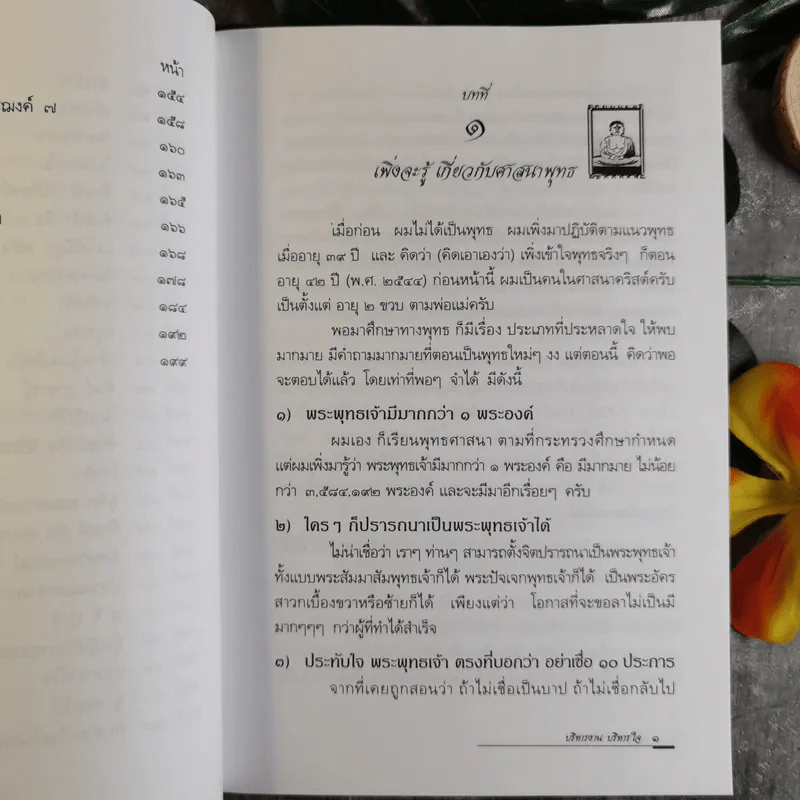 หน้า
ฌงค์ ๗
๑๕๔
๑๕๘
๑๖๐
๑๖๓
๑๖๕
๑๖๖
๑๖๘
๑๗๘
๑๘๔
๑๙๒
๑๙๙
บทที่
๑
เพิ่งจะรู้ เกี่ยวกับศาสนาพุทธ
เมื่อก่อน ผมไม่ได้เป็นพุทธ ผมเพิ่งมาปฏิบัติตามแนวพุทธ
เมื่ออายุ ๓๙ ปี และ คิดว่า (คิดเอาเองว่า) เพิ่งเข้าใจพุทธจริงๆ ก็ตอน
อายุ ๔๒ ปี (พ.ศ. ๒๕๔๔) ก่อนหน้านี้ ผมเป็นคนในศาสนาคริสต์ครับ
เป็นตั้งแต่ อายุ ๒ ขวบ ตามพ่อแม่ครับ
พอมาศึกษาทางพุทธ ก็มีเรื่อง ประเภทที่ประหลาดใจ ให้พบ
มากมาย มีคำถามมากมายที่ตอนเป็นพุทธใหม่ๆ งง แต่ตอนนี้ คิดว่าพอ
จะตอบได้แล้ว โดยเท่าที่พอๆ จำได้ มีดังนี้
๑) พระพุทธเจ้ามีมากกว่า ๑ พระองค์
ผมเอง ก็เรียนพุทธศาสนา ตามที่กระทรวงศึกษากำหนด
แต่ผมเพิ่งมารู้ว่า พระพุทธเจ้ามีมากกว่า ๑ พระองค์ คือ มีมากมาย ไม่น้อย
กว่า ๓,๕๘๔,๑๙๒ พระองค์ และจะมีมาอีกเรื่อยๆ ครับ
๒) ใครๆ ก็ปรารถนาเป็นพระพุทธเจ้าได้
ไม่น่าเชื่อว่า เราๆ ท่านๆ สามารถตั้งจิตปรารถนาเป็นพระพุทธเจ้า
ทั้งแบบพระสัมมาสัมพุทธเจ้าก็ได้ พระปัจเจกพุทธเจ้าก็ได้ เป็นพระอัคร
สาวกเบื้องขวาหรือซ้ายก็ได้ เพียงแต่ว่า โอกาสที่จะขอลาไม่เป็นมี
มากๆๆๆ กว่าผู้ที่ทำได้สำเร็จ
๓) ประทับใจ พระพุทธเจ้า ตรงที่บอกว่า อย่าเชื่อ ๑๐ ประการ
จากที่เคยถูกสอนว่า ถ้าไม่เชื่อเป็นบาป ถ้าไม่เชื่อกลับไป
บริหารงาน บริหารใจ ๑